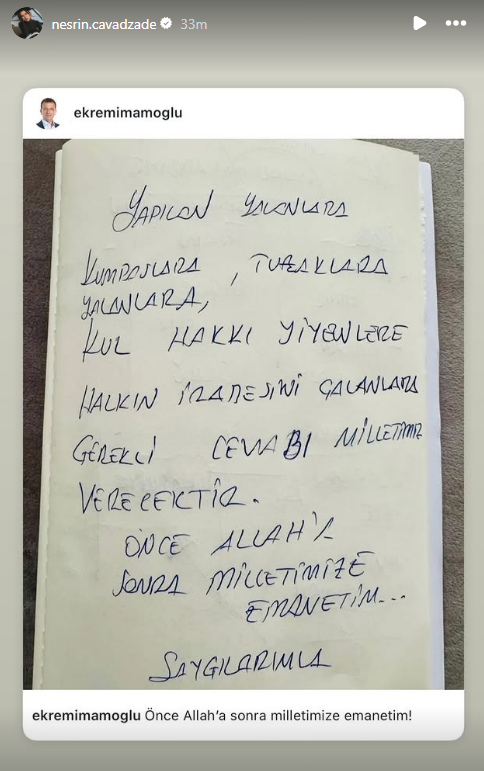 nesrin.cavadzade 33m
ekremimamoglu
YAPILAN YALANLARA
KUMPASLARA , TUZAKLARA
YALANLARA,
KUL HAKKI YİYENLERE
HALKIN İRADESİNİ ÇALANLARA
GEREKLİ CEVABI MİLLETİMİZ
VERECEKTİR.
ÖNCE ALLAH'A
SONRA MİLLETİMİZE
EMANETİM...
SAYGILARIMLA
ekremimamoglu Önce Allah'a sonra milletimize emanetim!